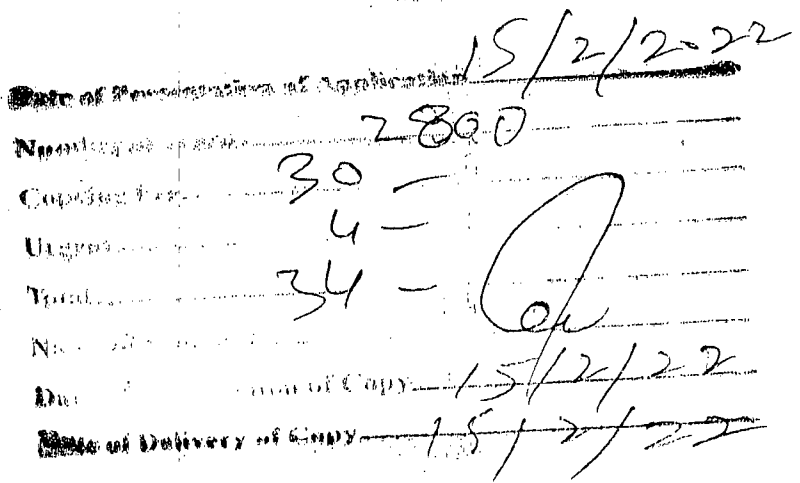 Date of Presentation of Application 15/2/2022
Number of 2800
Copying Fee 30 —
Urgent 4 —
Total 34 —
of Copy 15/2/22
Date of Delivery of Copy 15/2/22